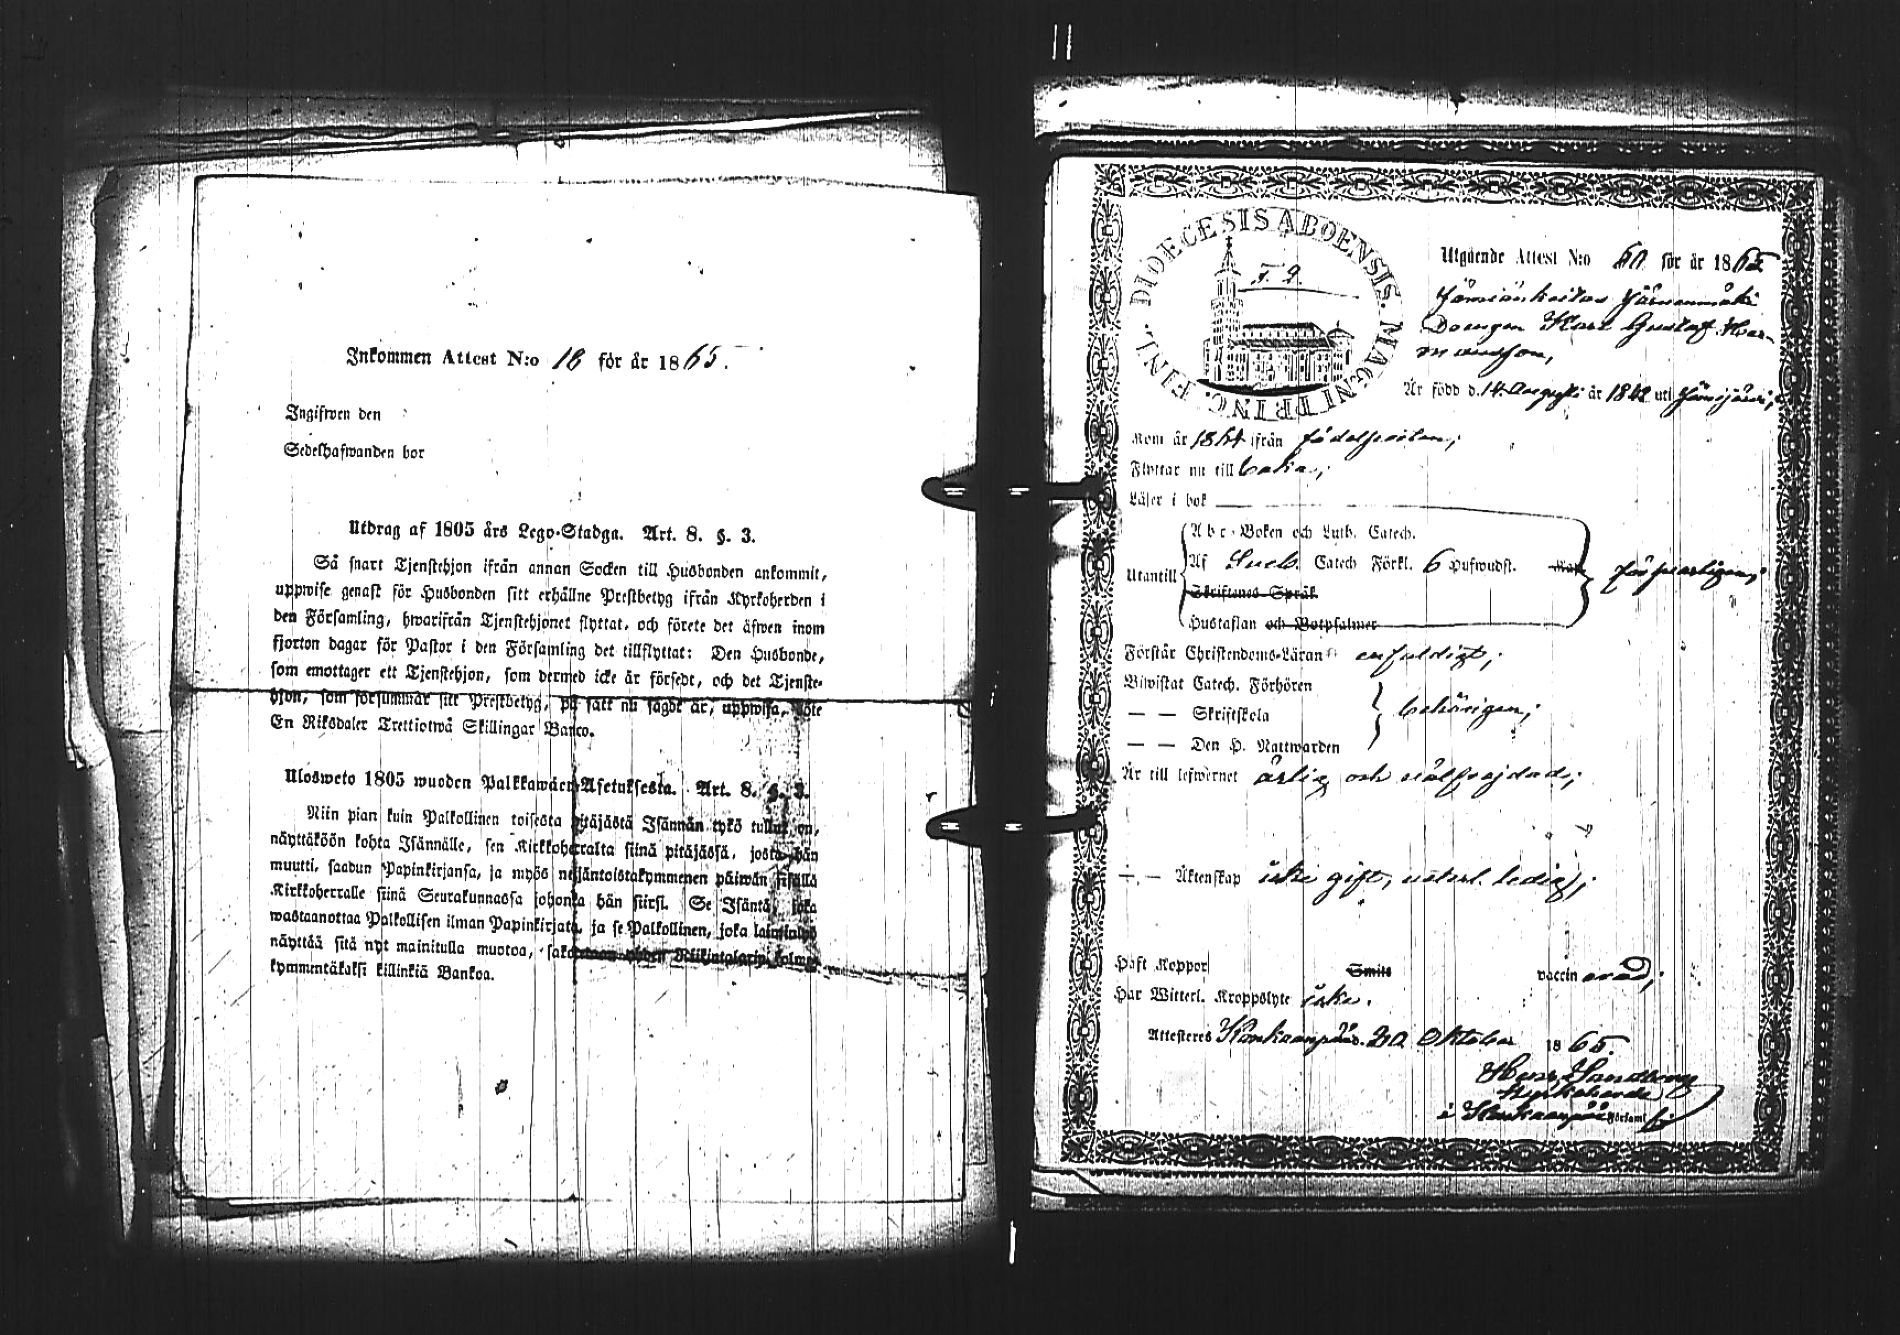 Inkommen Attest N:o 18 för år 1865.
Ingifwen den
Sedelhafwanden bor
Utdrag af 1805 års Lego-Stadga. Art. 8. §. 3.
Så snart Tjenstehjon ifrån annan Socken till Husbonden ankommit,
uppwise genast för Husbonden sitt erhållne Prestbetyg ifrån Kyrkoherden i
den Församling, hwarifrån Tjenstehjonet flyttat, och förete det äfwen inom
fjorton dagar för Pastor i den Församling det tillflyttat: Den Husbonde,
som emottager ett Tjenstehjon, som dermed icke är försedt, och det Tjenste-
hjon, som försummar sitt Prestbetyg, på sätt nu sagdt är, uppwisa, böte
En Riksdaler Trettiotwå Skillingar Banco.
Uloswето 1805 wuoden Palkkawäen Asetuksesta. Art. 8. §. 3.
Niin pian kuin Palkollinen toisesta pitäjästä Isännän tykö tullut on,
näyttäköön kohta Isännälle, sen Kirkkoherralta siinä pitäjässä, josta hän
muutti, saadun Papinkirjansa, ja myös neljäntoistakymmenen päiwän sisällä
Kirkkoherralle siinä Seurakunnassa johonka hän siirsi. Se Isäntä, joka
wastaanottaa Palkollisen ilman Papinkirjata, ja se Palkollinen, joka laiminlyö
näyttää sitä nyt mainitulla muotoa, sakotetaan yhden Riikintalarin kolme-
kymmentäkaksi killinkiä Bankoa.
DIOECESIS ABOENSIS. MAGNI PRINC. FINL.
F. 2.
Utgående Attest N:o 60 för år 1865
Jämiänkeitas Järvenmäki
Drengen Karl Gustaf Her-
mansson,
Är född d. 14 Augusti år 1842 uti Jämijärvi,
Kom år 1864 ifrån födelseorten;
Flyttar nu till baka;
Läser i bok
Abc-Boken och Luth. Catech.
Utantill Af Sveb. Catech Förkl. 6 Hufwudst. försvarligen;
Skriftenes Språk
Hustaflan och Botpsalmer
Förstår Christendoms-Läran enfaldigt;
Biwistat Catech. Förhören
— — Skriftskola behörigen;
— — Den H. Nattwarden
Är till lefwernet ärlig och välfrejdad;
— „ — Äktenskap icke gift, veterl. ledig;
Haft Koppor Smitt vaccin. ärad;
Har Witterl. Kroppslyte icke.
Attesteres Kankaanpää. 20 Oktober 1865.
Sandberg
Kyrkoherde
i Kankaanpää Församl